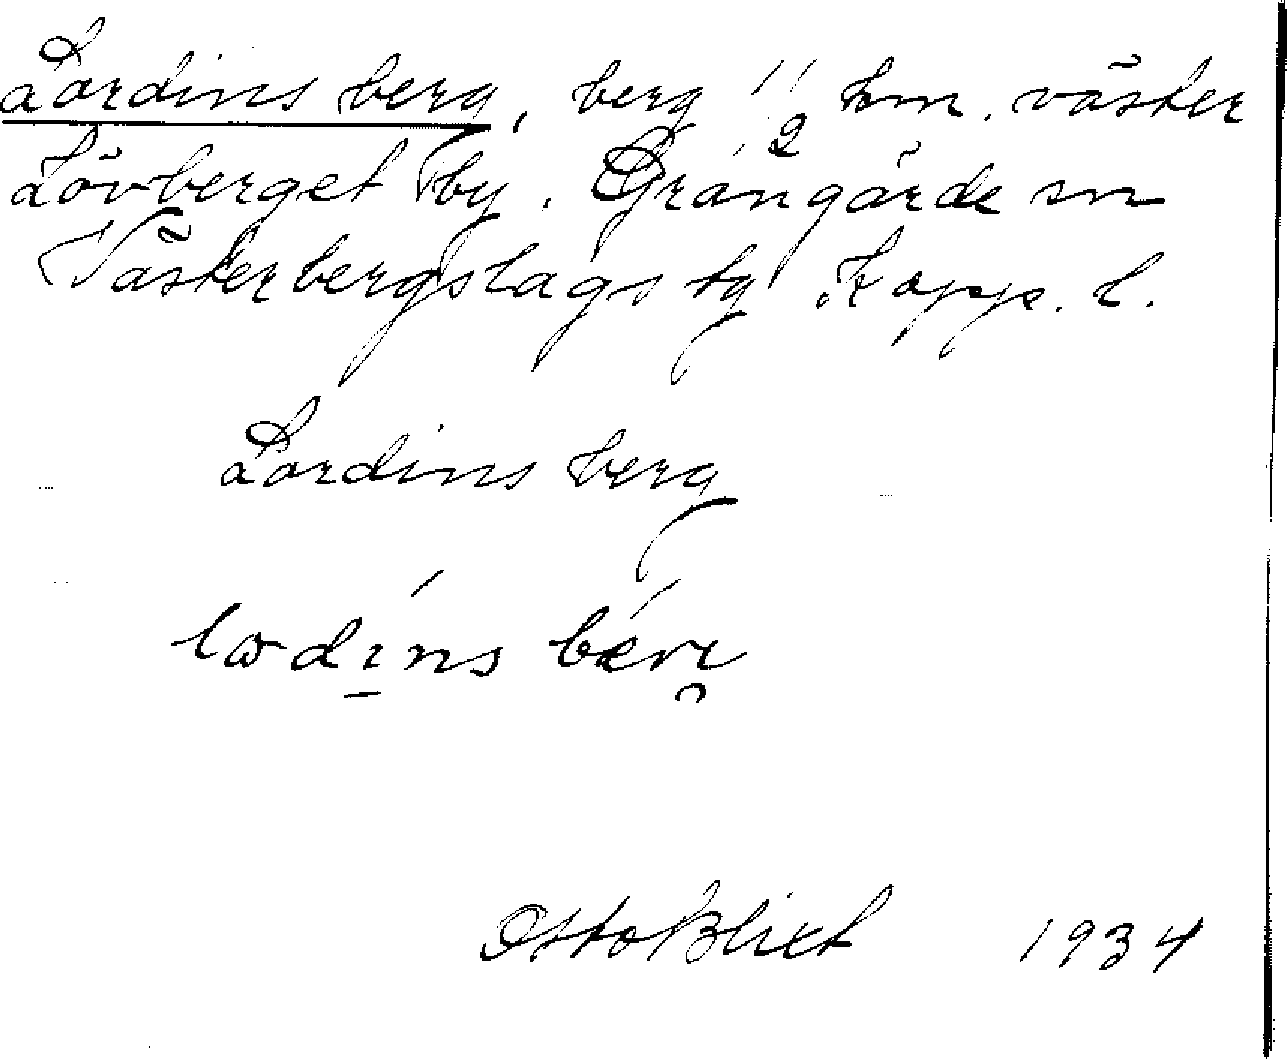 Lordins berg, berg 1 1/2 km. väster
Lövberget by. Grangärde sn
Västerbergslags tg Kopp. l.
Lordins berg
Otto Blixt 1934